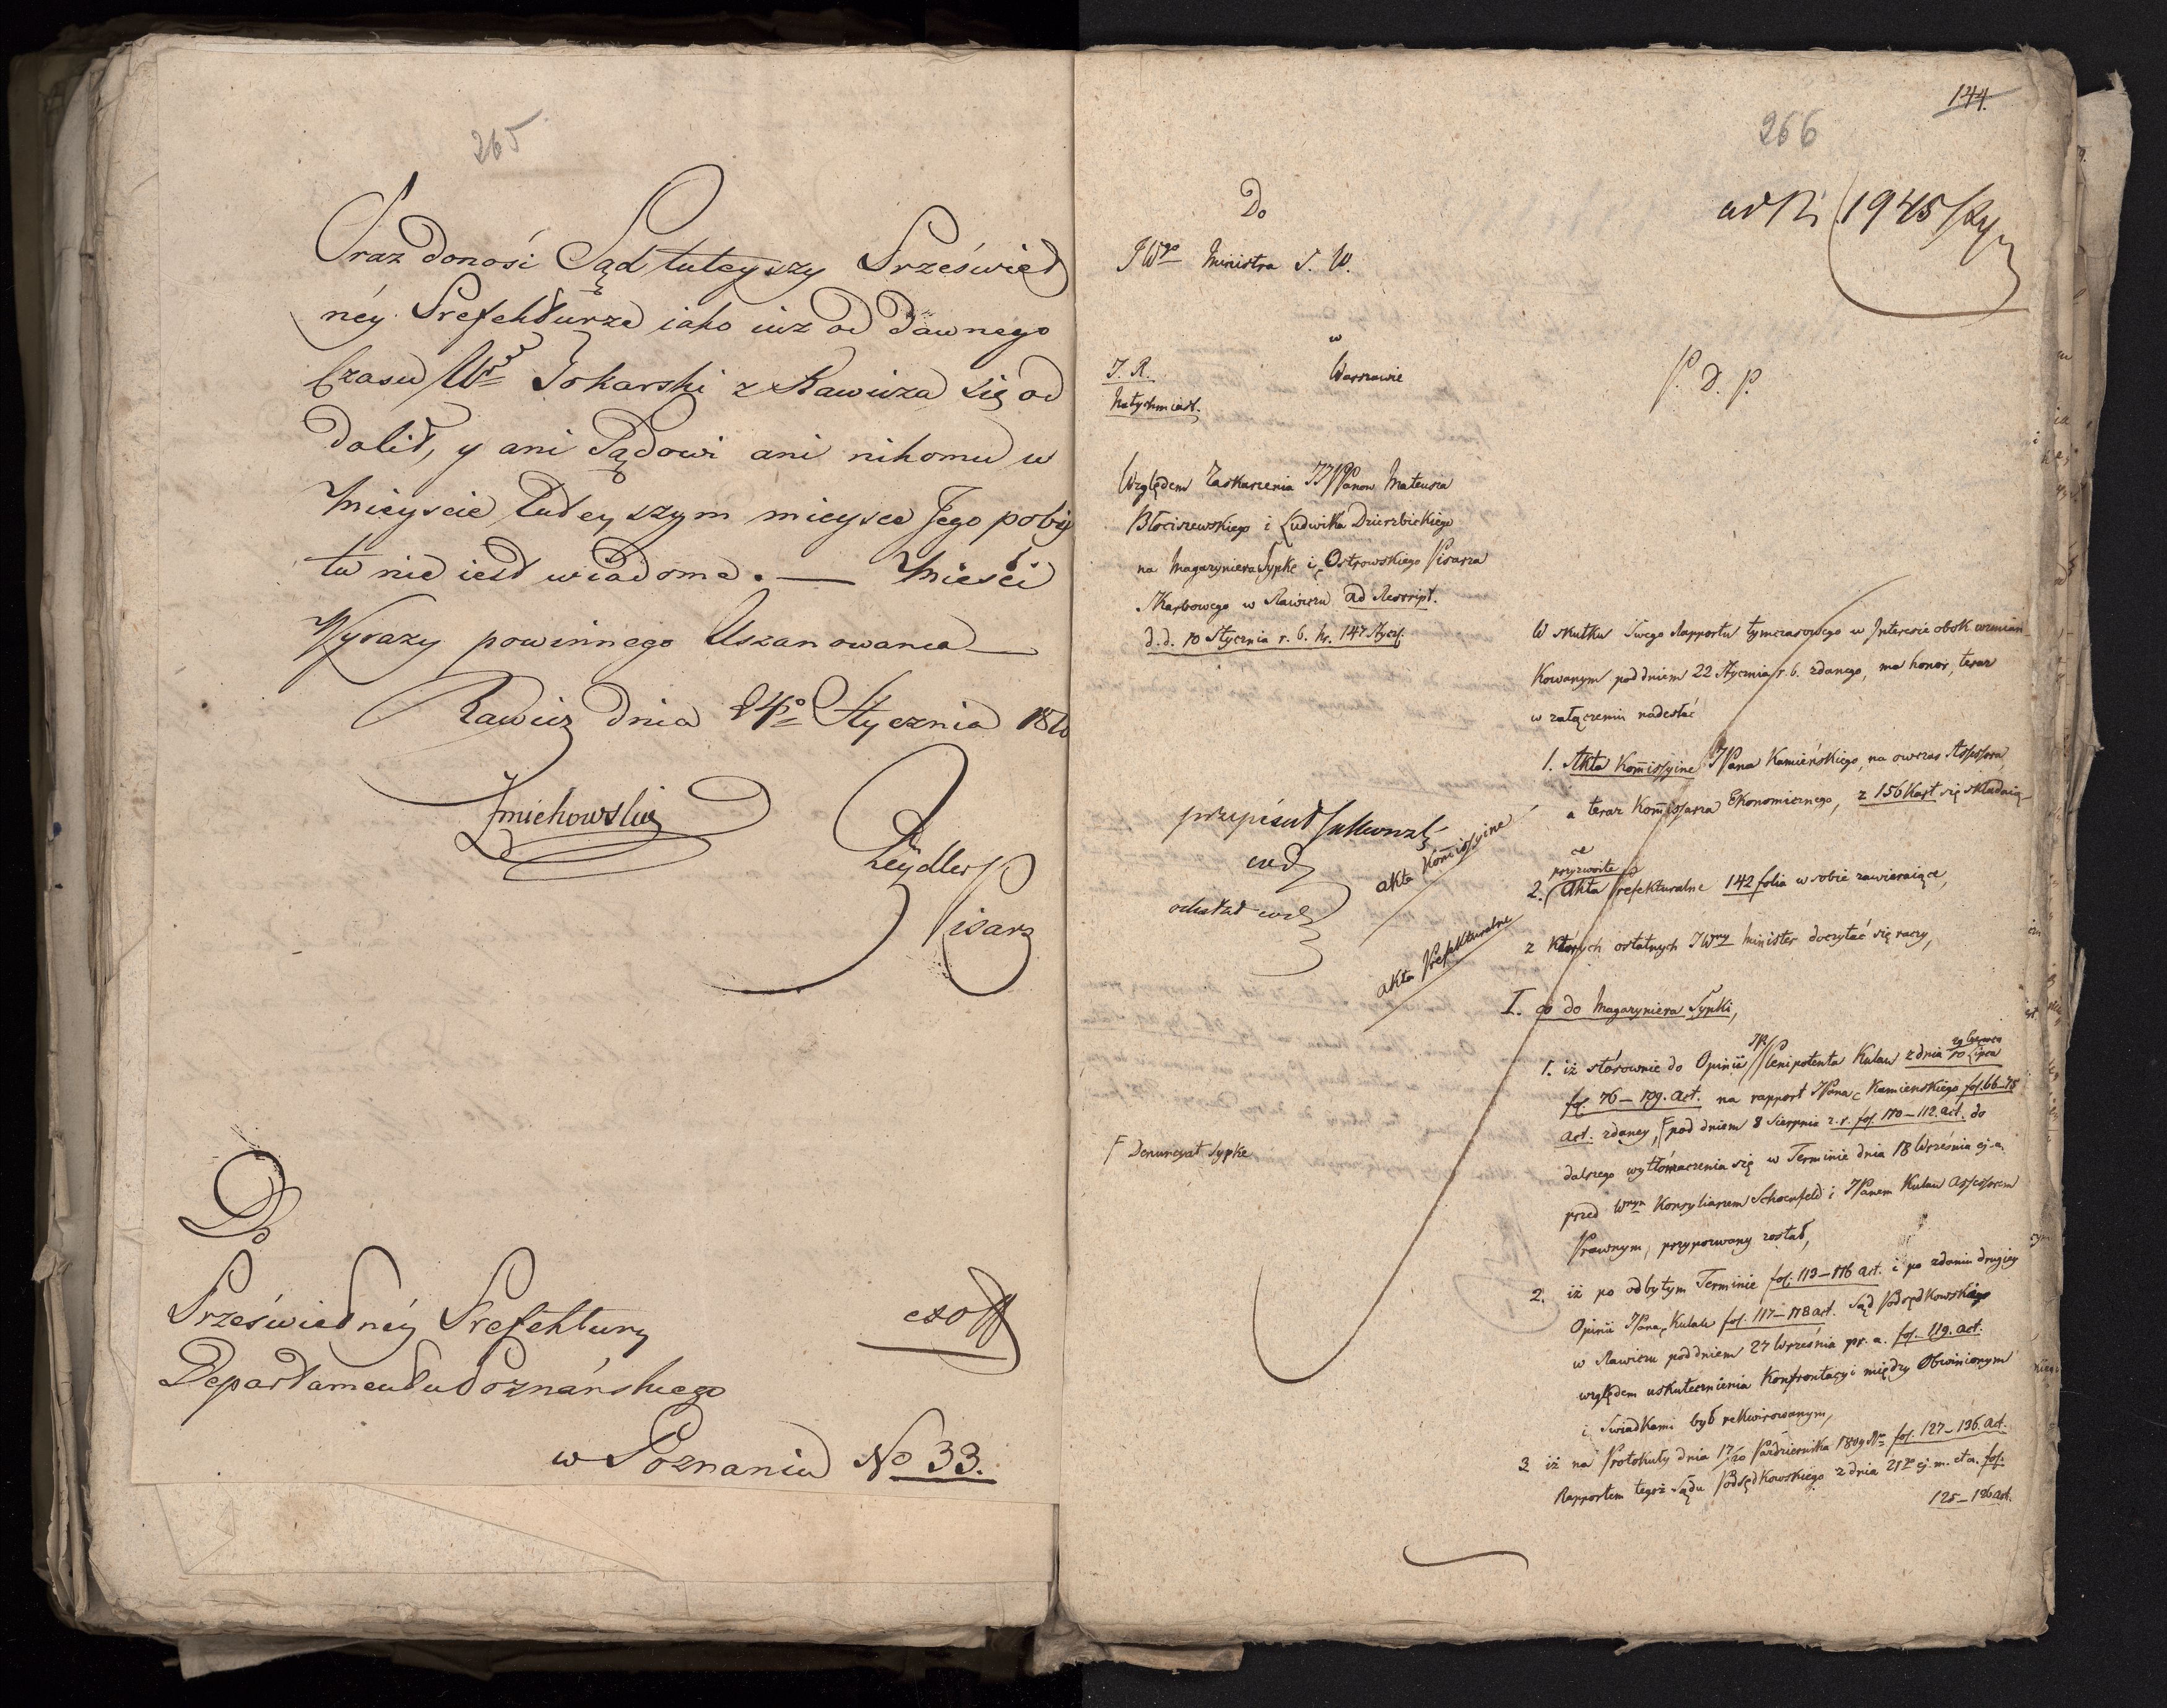 265
Oraz donosi Sąd tuteyszy Prześwied
néy Prefekturze iako iuz od dawnego
Czasu Wny Tokarski z Rawicza się od
dalił, y ani Sądowi ani nikomu w
Mieyscie tuteyszym mieysce Jego poby
tu nie iest wiadome. — Mieści
Wyrazy powinnego Uszanowania —
Rawicz dnia 24go Stycznia 1810
Zmichowski
Zeydler
Pisarz
Do
Prześwietnéy Prefektury
Departamentu Poznańskiego
exoff
w Poznaniu No 33.
144.
266
ad N 1945
Do
JWgo Ministra S. W.
w
Warszawie
J. R.
Natychmiast.
P. D. P.
Względem Zaskarzenia JJPPanow Mateusza
Błociszewskiego i Ludwika Dzierzbickiego
na Magazyniera Sypkę i Ostrowskiego Pisarza
Skarbowego w Rawiczu ad Rescript.
d. d. 10 Stycznia r. b. Nr. 147
W skutku Swego Rapportu tymczasowego w Interesie obok wzmian
kowanym pod dniem 22 Stycznia r. b. zdanego, ma honor, teraz
w załączeniu nadesłać
1. Akta Kom̃issyine JPana Kamieńskiego, na owczas Assessora
a teraz Kom̃issarza Ekonomicznego, z 156 Kart się składaią
ce
przyzwoite
2. Akta Prefekturalne 142 folia w sobie zawieraiące,
z których ostatnych JWny Minister doczytać się raczy,
akta Kom̃issyine
akta Prefekturalne
I. co do Magazyniera Sypki,
1. iż stósownie do Opinii JP Plenipotenta Kulau z dnia 29 Czerwca 10 Lipca
fol. 76 — 109. act. na rapport JPana Kamienskiego fol. 66–75
act. zdaney, Γ pod dniem 8 Sierpnia z. r. fol. 110 — 112. act. do
dalszego wytłómaczenia się w Terminie dnia 18 Września ej. a.
przed Wnym Konsyliarzem Schoenfeld i JPanem Kulau Assessorem
Prawnym, przypozwany został,
Γ Denuncyat Sypke
2. iż po odbytym Terminie fol. 113 — 116 act. i po zdaniu drugiey
Opinii JPana Kulau fol. 117 — 118 act. Sąd Podsędkowskiego
w Rawiczu pod dniem 27 Września pr. a. fol. 119. act.
względem uskutecznienia Konfrontacyi między Obwinionym
i Swiadkami był rekwirowanym,
3 iż na Protokuły dnia 17/20 Października 1809 fol. 127 — 136. act.
Rapportem tegoż Sądu Podsędkowskiego z dnia 21go ej. m. et a. fol.
125 — 126 act.